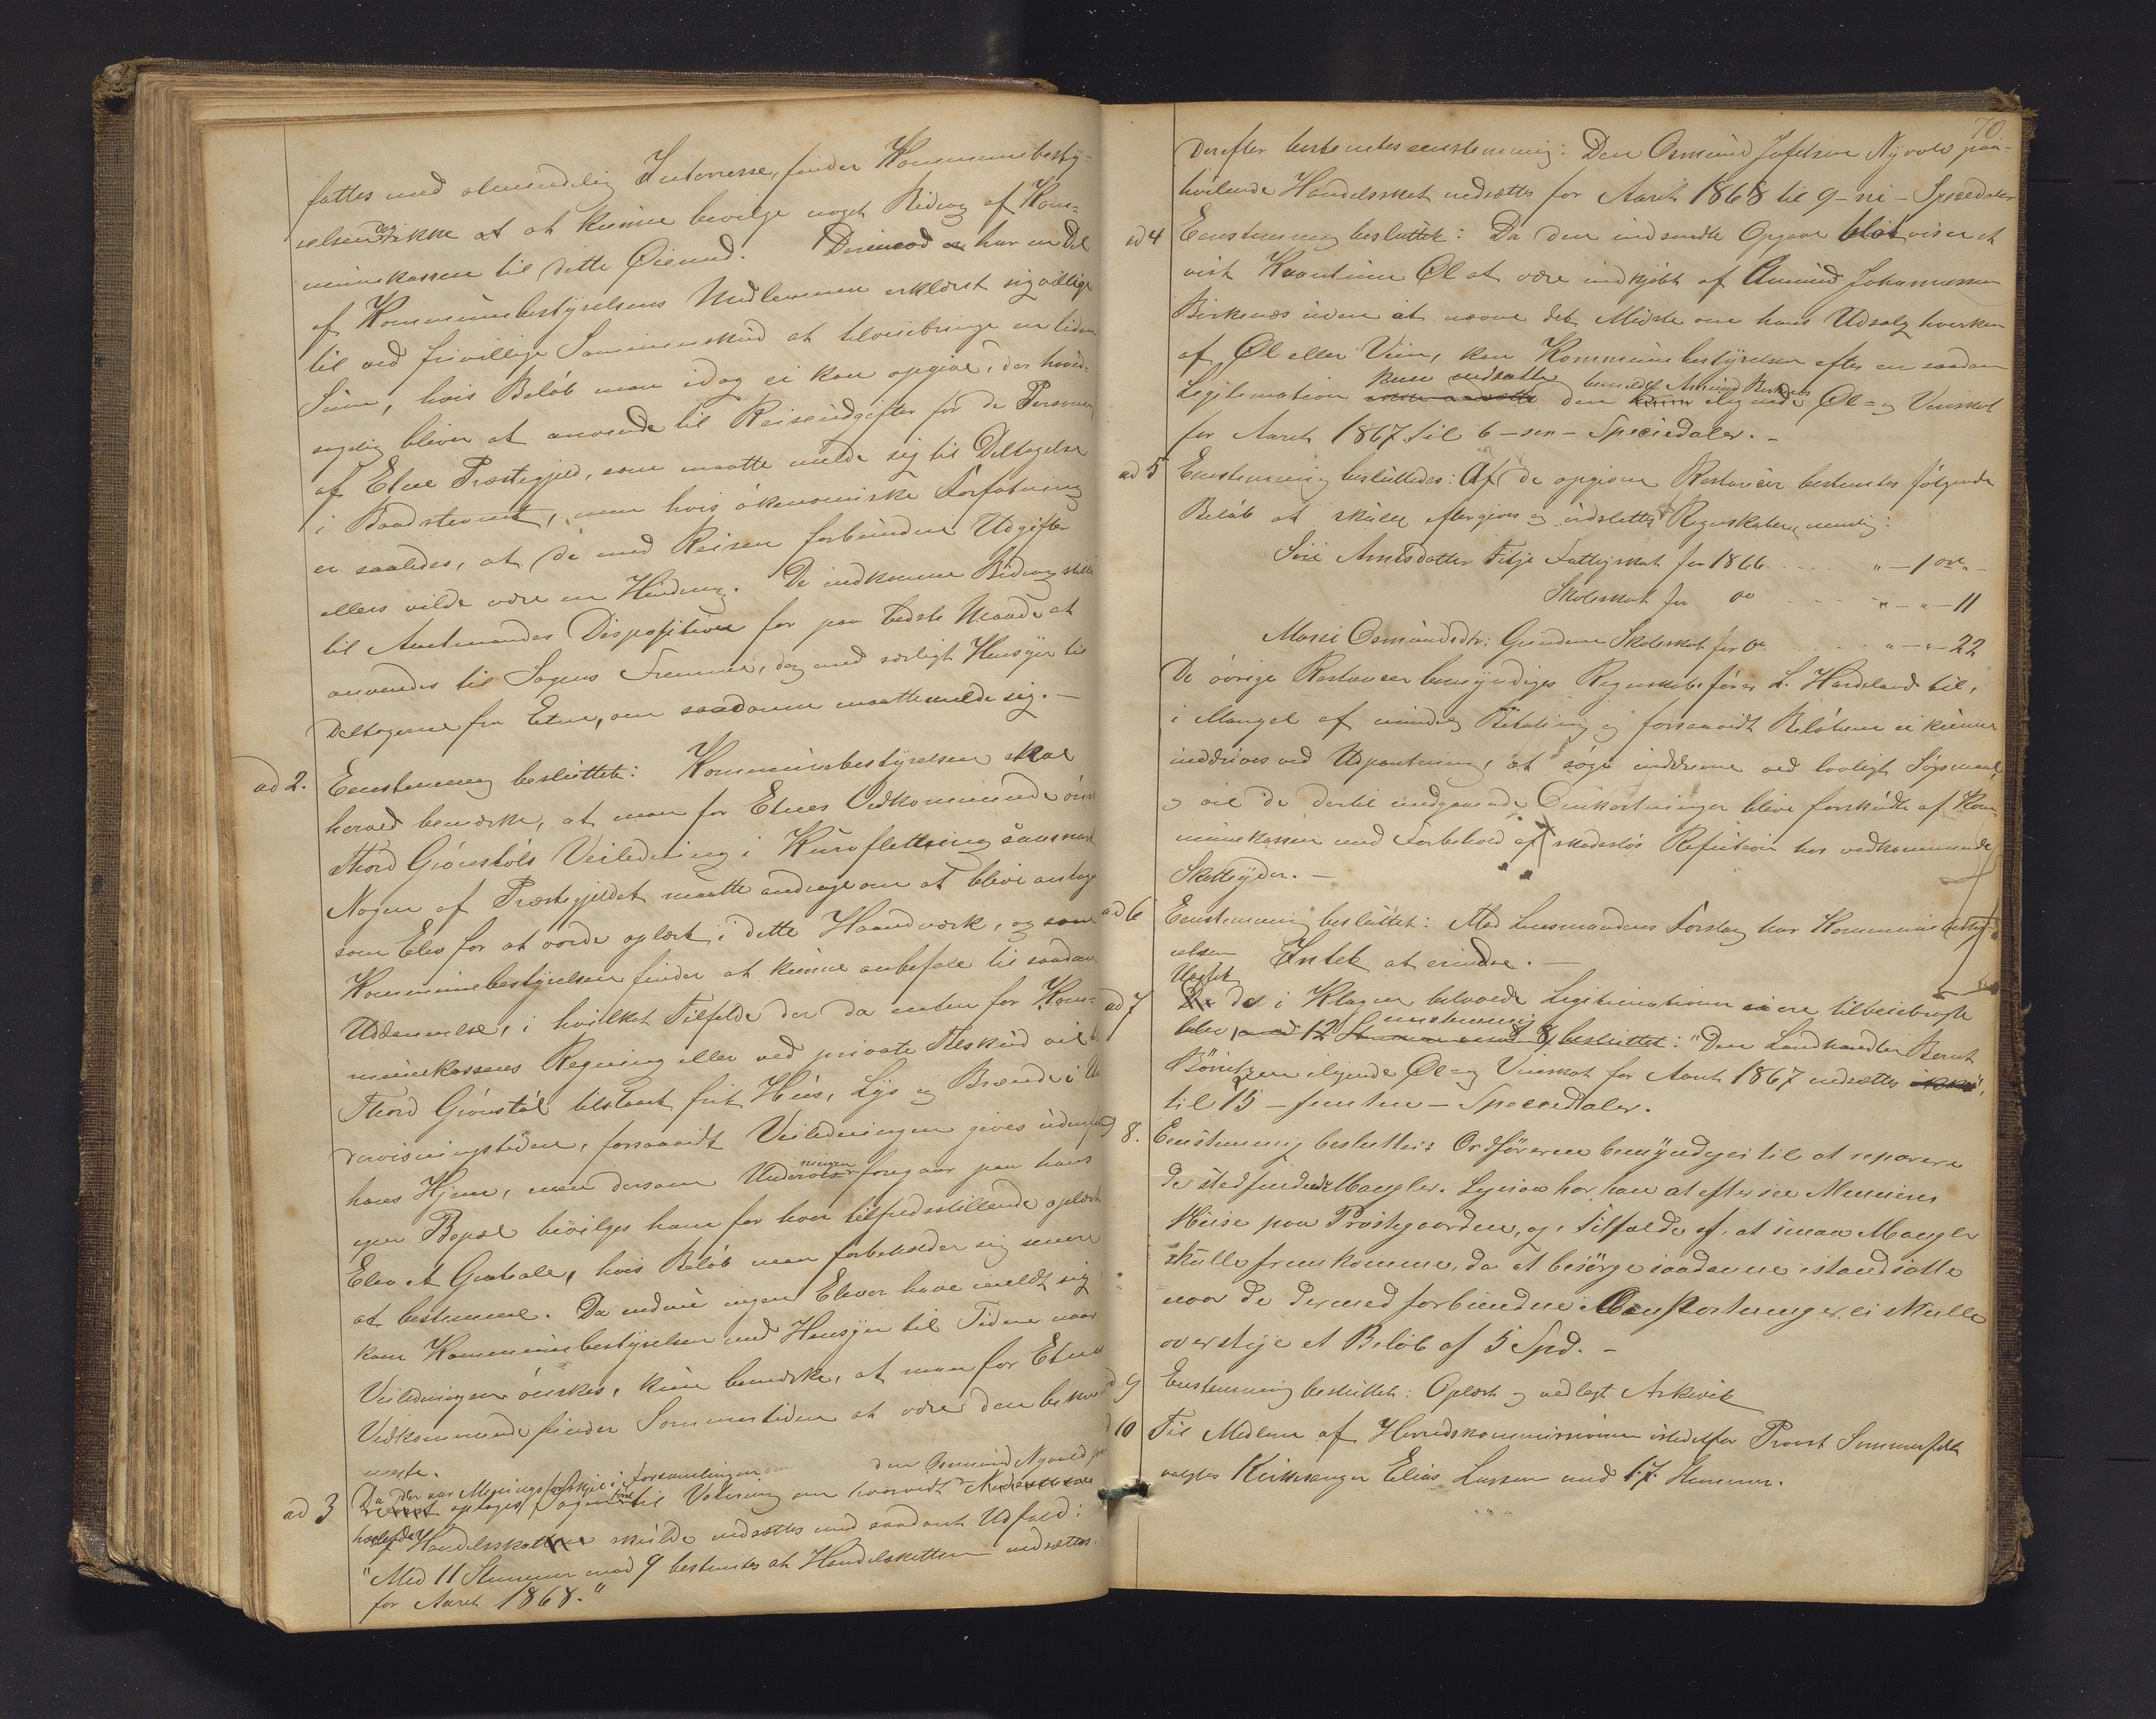 fattes med almindelig Interresse, finder Kommunebesty-
relsen dog ikke at at kunne bevilge noget Bidrag af Kom-
munekassen til dette Øiemed. Derimod har en Del
af Kommunebestyrelsens Medlemmer erklæret sig villige
til ved frivillige Sammenskud at tilveiebringe en liden
Sum, hvis Beløb man idag ei kan opgive, der hoved-
sagelig bliver at anvende til Reiseudgifter for de Personer
af Etne Præstegjeld, som maatte melde sig til Deltagelse
i Baadstevnet, men hvis økonomiske Forfatning
er saaledes, at de med Reisen forbundne Udgifter
ellers vilde være en Hindring. De indkomne Bidrag stilles
til Amtmandens Disposition for paa bedste Maade at
anvendes til Sagens Fremme, dog med særligt Hensyn til
Deltagerne fra Etne, om saadanne maatte melde sig. —
ad 2. Eenstemmig besluttet: Kommunebestyrelsen skal
herved bemærke, at man for Etnes Vedkommende ønsker
Thord Grønstøls Veiledning i Kurvfletning saasnart
Nogen af Præstegjeldet maatte andrage om at blive antaget
som Elev for at vorde oplært i dette Haandværk, og som
Kommunebestyrelsen finder at kunne anbefale til saadan
Uddannelse, i hvilket Tilfælde der da enten for Kom-
munekassens Regning eller ved private Tilskud vil blive
Thord Grønstøl tilstaaet frit Huus, Lys og Brænde i Un-
dervisningstiden, forsaavidt Veiledningen gives udenfor
hans Hjem, men dersom Undervisningen foregaar paa hans
egen Bopæl bevilges ham for hver tilfredsstillende oplært
Elev et Gratiale, hvis Beløb man forbeholder sig senere
at bestemme. Da endnu ingen Elever have meldt sig
kan Kommunebestyrelsen med Hensyn til Tiden naar
Veiledningen ønskes, kun bemærke, at man for Etnes
Vedkommende finder Sommertiden at være den bekvem-
meste.
ad 3 Da der var Meningsforskjel i Forsamlingen den Osmund Nyvold paa-
optoges Sagen først til Votering om hvorvidt
hvilende Handelsskat skulde nedsættes med saadant Udfald:
"Med 11 Stemmer mod 9 bestemtes at Handelsskatten nedsættes
for Aaret 1868."
70.
Derefter bestemtes eenstemmig: Den Osmund Jofelsen Nyvold paa-
hvilende Handelsskat nedsættes for Aaret 1868 til 9 - ni - Speciedaler
ad 4 Eenstemmig besluttet: Da den indsendte Opgave blot viser et
vist Kvantum Øl at være indkjøbt af Amund Johannessen
Birkenæs uden at nævne det Mindste om hans Udsalg hverken
af Øl eller Viin, kan Kommunebestyrelsen efter en saadan
Legitimation kun nedsætte den bemeldte Amund Birkenæs ilignede Øl- og Vinskat
for Aaret 1867 til 6 - sex - Speciedaler. -
ad 5 Eenstemmig besluttedes: Af de opgivne Restancer bestemtes følgende
Beløb at skulle eftergives og udslettes af Regnskabet, nemlig:
Siri Arnesdatter Fitje Fattigskat for 1866 . . . . . " - 1 ort " -
Skoleskat for do . . . . . " - " - 11
Massi Osmundsdtr: Skoleskat for do . . . . . " - " - 22
De øvrige Restancer bemyndiges Regnskabsfører L. Hardeland til,
i Mangel af mindelig Betaling og forsaavidt Beløbene ei kunne
inddrives ved Udpantning, at søge inddrevne ved lovligt Søgsmaal,
og vil de dertil medgaaende Omkostninger blive forskudte af Kom-
munekassen med Forbehold af skadesløs Refusion hos vedkommende
Skatteyder. —
ad 6 Eenstemmig besluttet: Mod Lensmandens Forslag har Kommunebesty-
relsen Intet at erindre. —
ad 7 Uagtet de i Klagen belovede Legitimationer ei ere tilveiebragte
blev eenstemmig besluttet: "Den Landhandler Bernt
ilignede Øl- og Vinskat for Aaret 1867 nedsættes
til 15 - femten - Speciedaler.
8. Eenstemmig besluttes: Ordføreren bemyndiges til at reparere
de stedfindende Mangler. Ligesaa har han at efterse
Huse paa Præstegaarden, og i Tilfælde af, at smaa Mangler
skulle fremkomme, da at besørge saadanne istandsatte
naar de dermed forbundne Omkostninger ei skulle
overstige et Beløb af 5 Spd. -
9 Eenstemmig besluttet: Oplæst og vedlagt Arkivet
10 Til Medlem af Herredskommissionen istedetfor Provst Sommerfeldt
valgtes Kirkesanger Elias Larsen med 17 Stemmer.